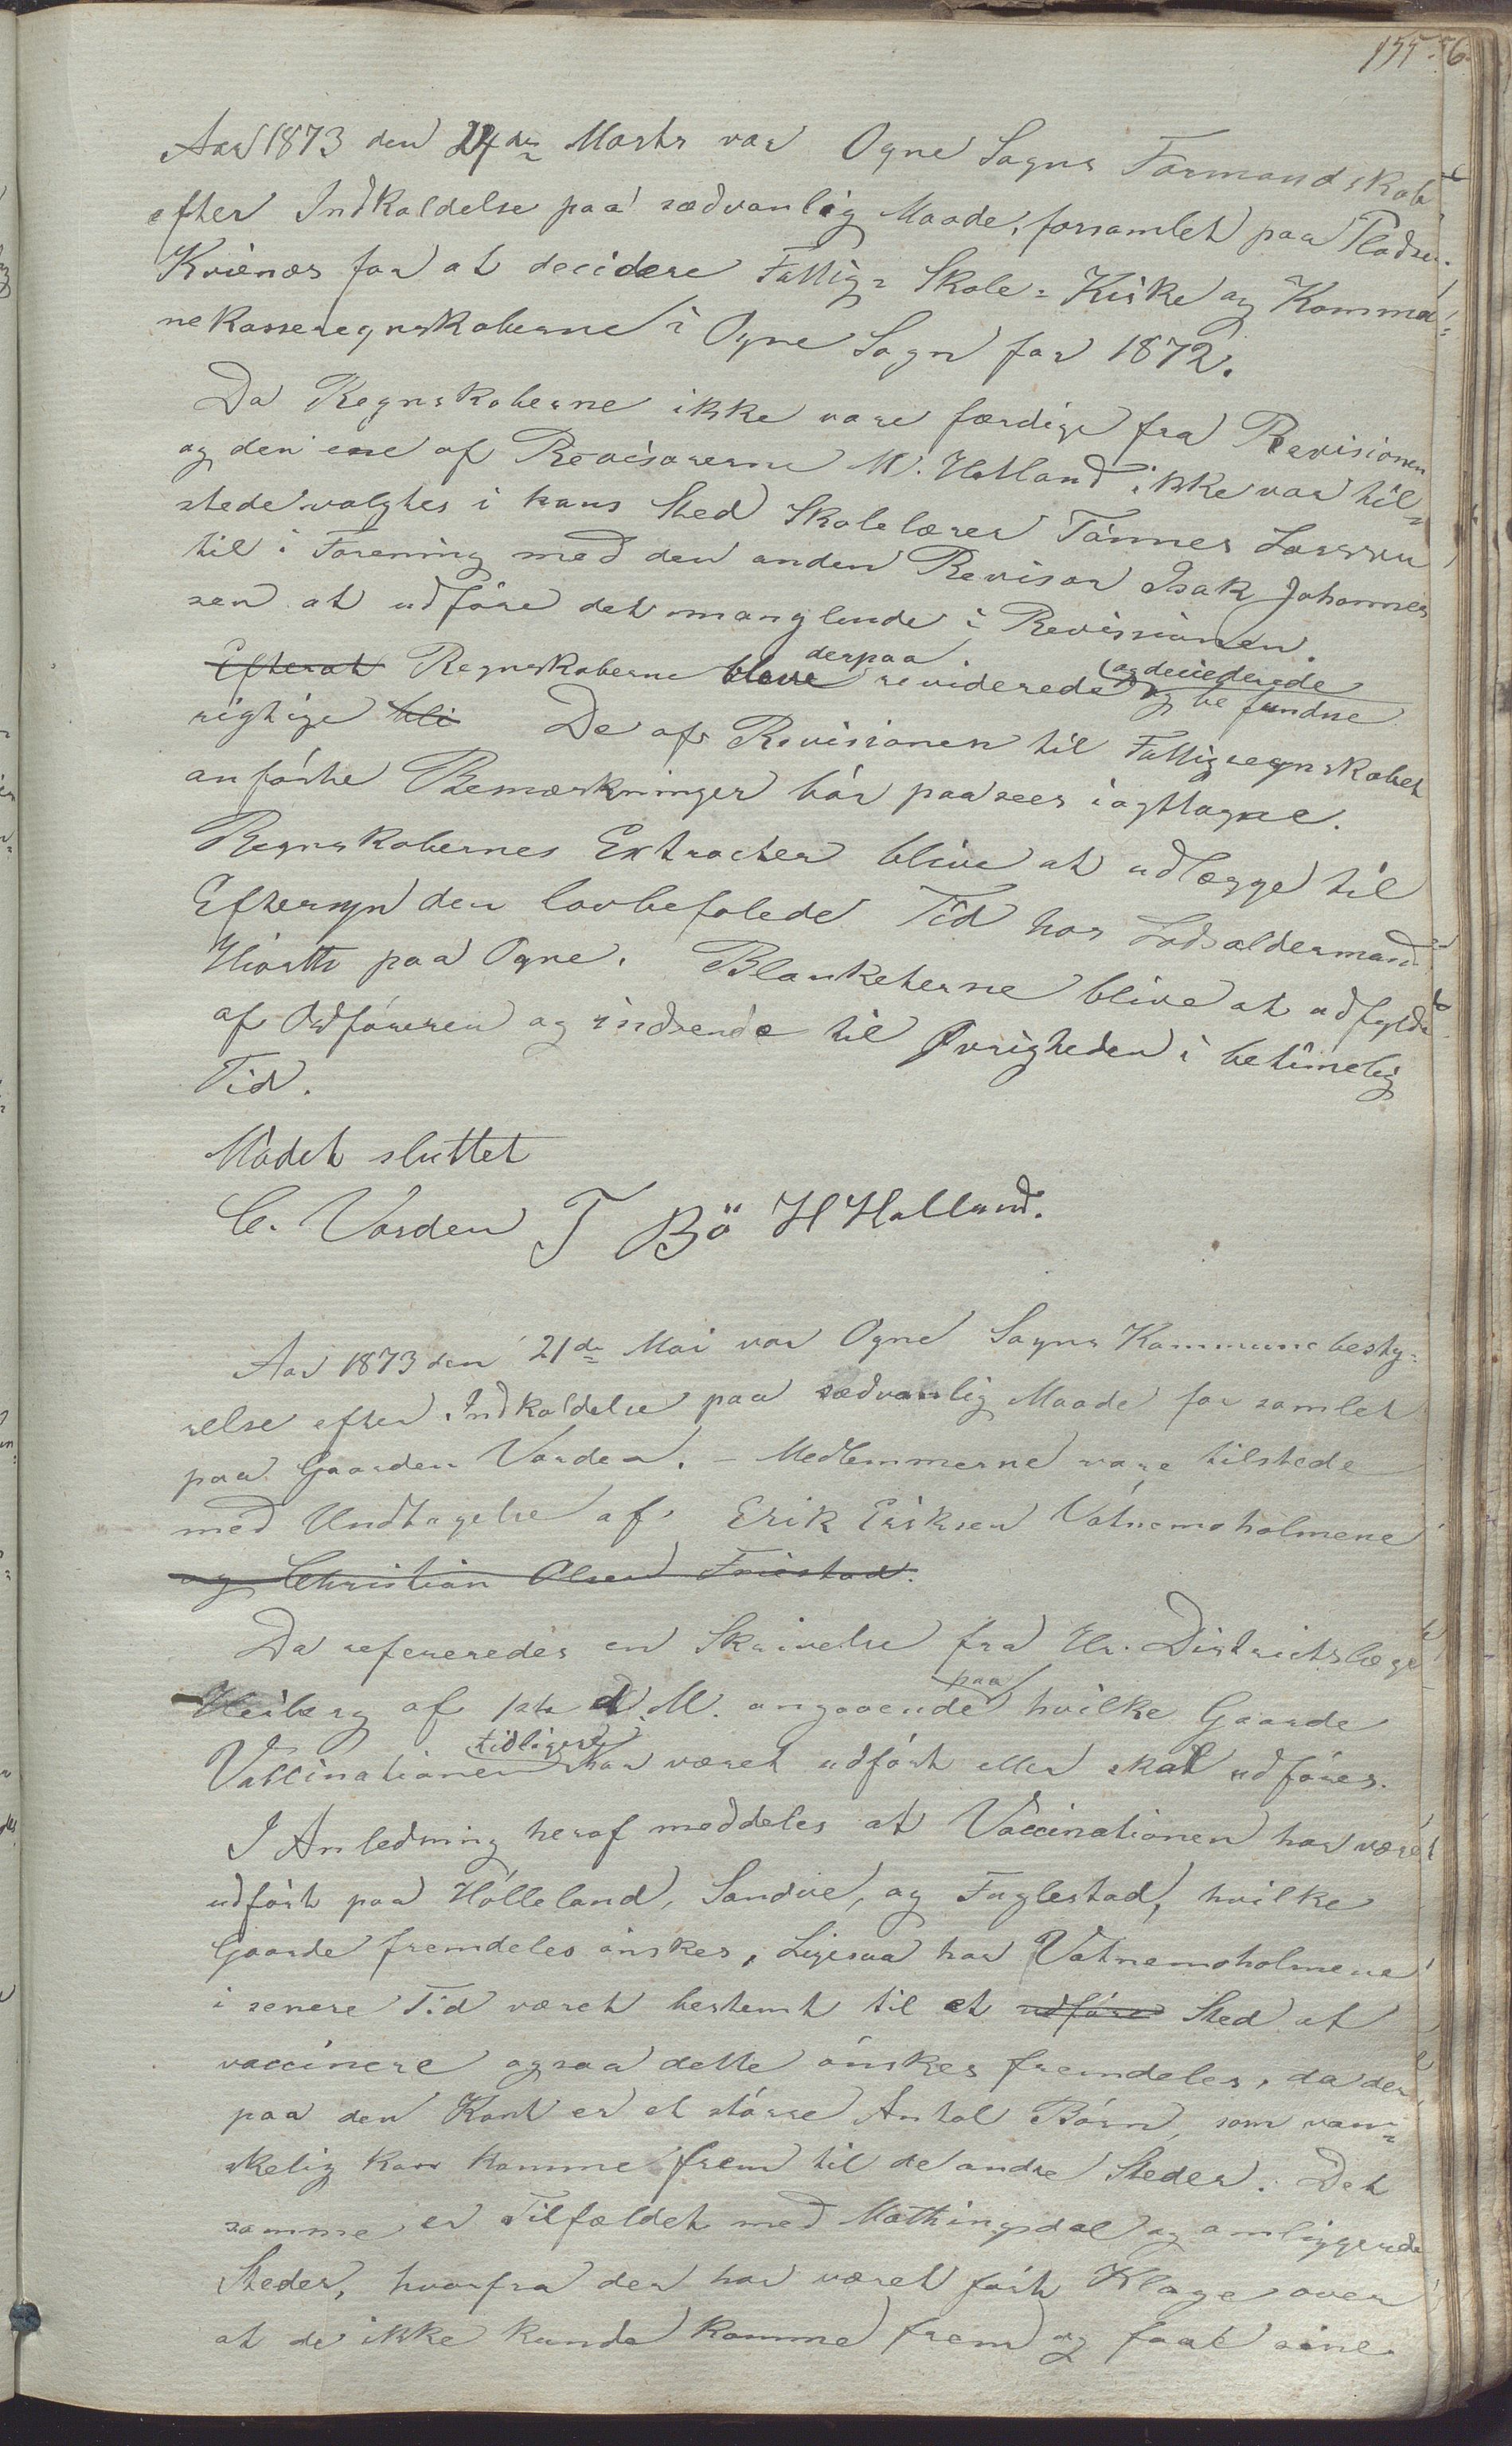 155.
Aar 1873 den 24de Marts var Ogne Sogns Formandskab
efter Indkaldelse paa sædvanlig Maade, forsamlet paa Pladsen
Kvienes for at decidere Fattig- Skole- Kirke og Kommu-
nekasseregnskaberne i Ogne Sogn for 1872.
Da Regnskaberne ikke vare færdige fra Revisionen
og den ene af Revisorerne M. Hetland ikke var til-
stede valgtes i hans Sted Skolelærer Tönnes Larssen
til i Forening med den anden Revisor Isak Johannes
sen at udföre det manglende i Revissionen.
Efterat Regnskaberne bleve derpaa reviderede og deciderede og befundne
rigtige bli De af Revisionen til Fattigregnskabet
anförte Bemærkninger bör paasees iagttagne.
Regnskabernes Extracter blive at udlægge til
Eftersyn den lovbefalede Tid hos Lodsoldermand
Hiorth paa Ogne. Blanketterne blive at udfylde
af Ordföreren og indsende til Øvrigheden i betimelig
Tid.
Mödet sluttet
C. Varden T Bö H Halland.
Aar 1873 den 21de Mai var Ogne Sogns Kommunebesty-
relse efter Indkaldelse paa sædvanlig Maade forsamlet
paa Gaarden Varden. - Medlemmerne vare tilstede
med Undtagelse af Erik Eriksen Vatnemoholmene
og Christian Olsen Friestad.
Da refereredes en Skrivelse fra Hr. Districtslæge
Heiberg af 1ste d. M. angaaende paa hvilke Gaarde
Vaccinationen tidligere har været udfört eller skal udföres.
I Anledning heraf meddeles at Vaccinationen har været
udfört paa Hölleland, Sandve, og Fuglestad, hvilke
Gaarde fremdeles önskes, Ligesaa har Vatnemoholmene
i senere Tid været bestemt til et udföre Sted at
vaccinere ogsaa dette önskes fremdeles, da der
paa den Kant er et större Antal Börn, som van-
skelig kan komme frem til de andre Steder. Det
samme er Tilfældet med Mathingsdal og omliggende
Steder, hvorfra der har været fört Klage over
at de ikke kunde komme frem og faae sine